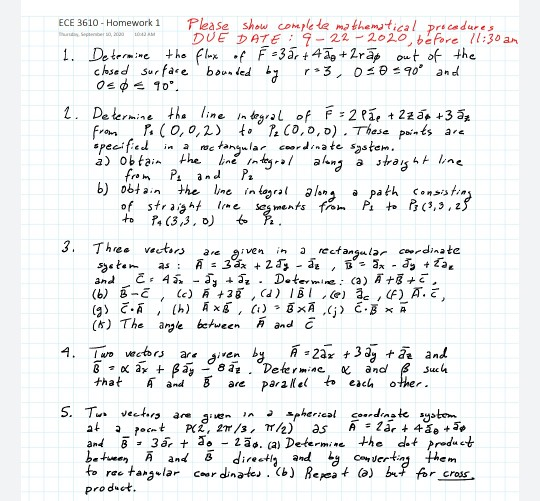 ECE 3610 - Homework 1
Please show complete mathematical procedures
Thursday, September 10, 2020 10:42 AM
DUE DATE: 9-22-2020, before 11:30 am
1. Determine the flux of F̄ = 3ār + 4āθ + 2rāφ out of the
closed surface bounded by r=3, 0≤θ≤90° and
0≤φ≤90°.
2. Determine the line integral of F̄ = 2ρāρ + 2zāφ + 3āz
from P₁(0,0,2) to P₂(0,0,0). These points are
specified in a rectangular coordinate system.
a) Obtain the line integral along a straight line
from P₁ and P₂
b) Obtain the line integral along a path consisting
of straight line segments from P₁ to P₃(3,3,2)
to P₄(3,3,0) to P₂.
3. Three vectors are given in a rectangular coordinate
system as: Ā = 3āx + 2āy - āz, B̄ = āx - āy + 2āz
and C̄ = 4āx - āy + āz. Determine: (a) Ā+B̄+C̄,
(b) B̄-C̄, (c) Ā+3B̄, (d) |B̄|, (e) āc, (f) Ā·C̄,
(g) C̄·Ā, (h) ĀxB̄, (i) = B̄xĀ, (j) C̄·B̄xĀ
(k) The angle between Ā and C̄
4. Two vectors are given by Ā = 2āx + 3āy + āz and
B̄ = αāx + βāy - 8āz. Determine α and β such
that Ā and B̄ are parallel to each other.
5. Two vectors are given in a spherical coordinate system
at a point P(2, 2π/3, π/2) as Ā = 2ār + 4āθ + āφ
and B̄ = 3ār + āθ - 2āφ. (a) Determine the dot product
between Ā and B̄ directly and by converting them
to rectangular coordinates. (b) Repeat (a) but for cross
product.